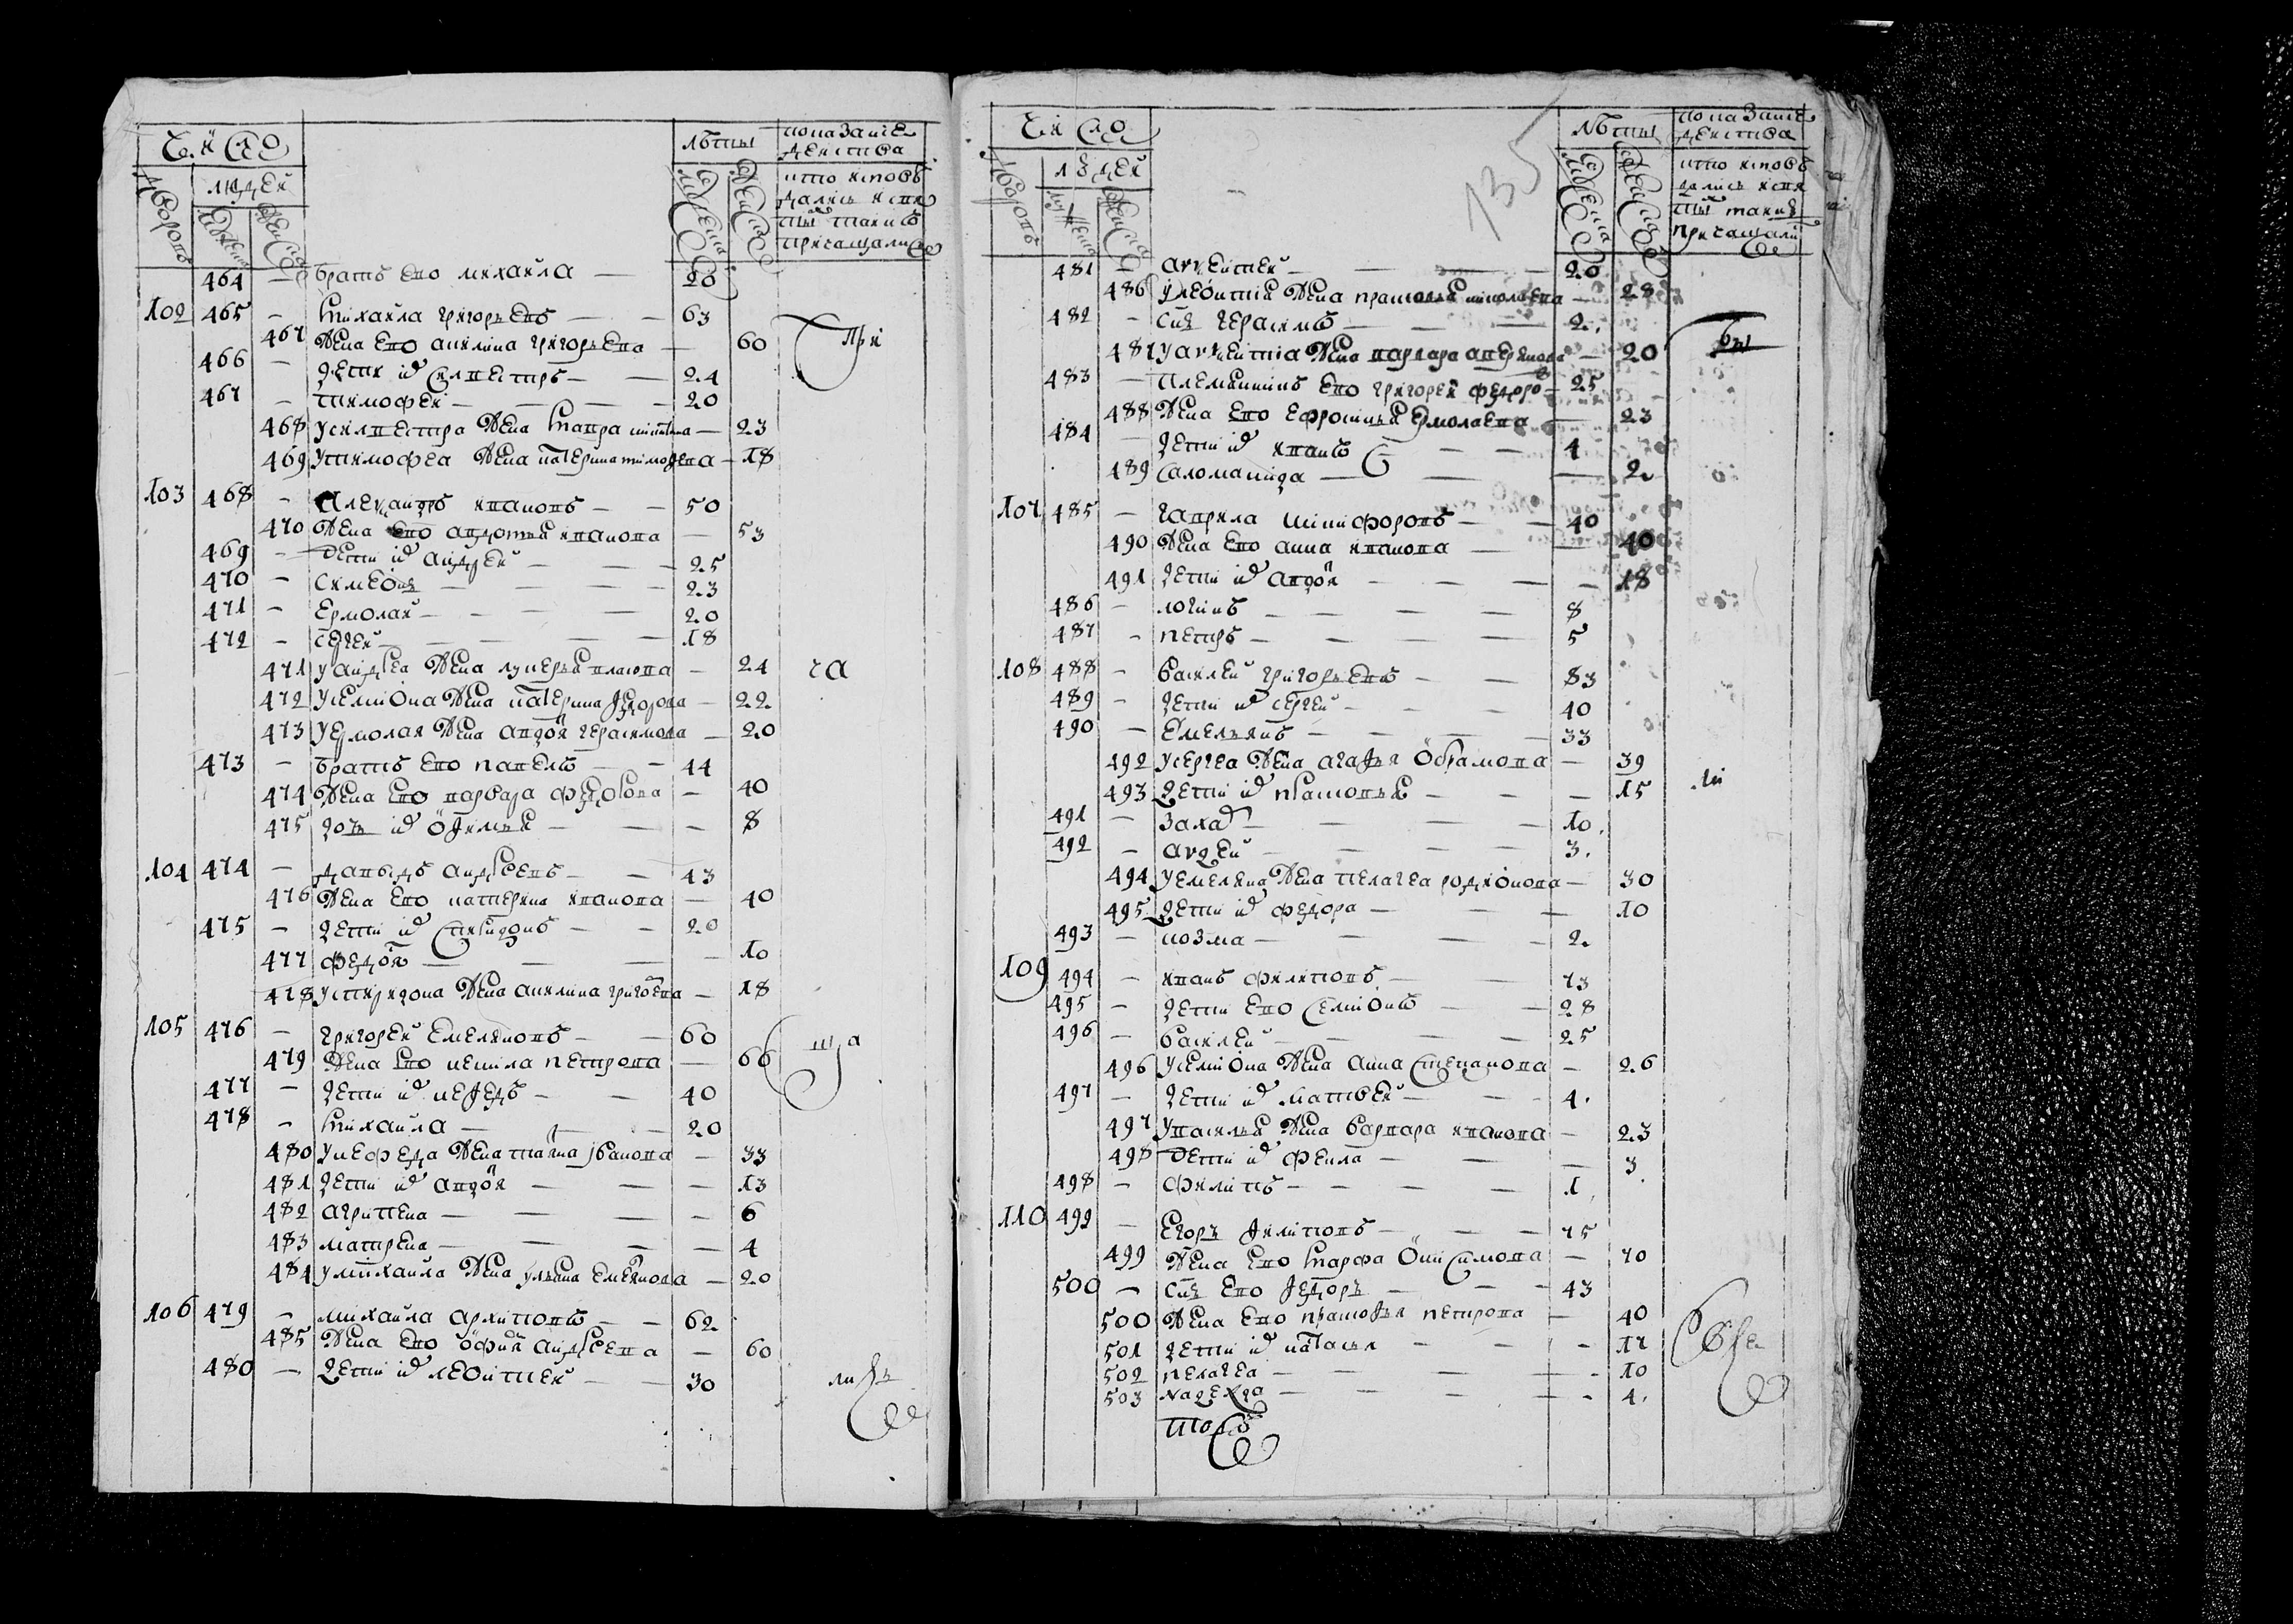 Число
Дворовъ
людей
мужеска
женска
лѣты
мужеска
женска
показание
действа
кто исповѣ
дались и свя
тыхъ таинъ
причащались
464 — братъ ево михаила — 20
102 465 — михаила григорьевъ — — 63
467 жена ево акилина григорьева — 60
При
466 — дети их силвестръ — — 24
467 — тимофеи — — — 20
468 у силвестра жена мавра никитина — 23
469 у тимофеа жена катерина тимофеева — 18
103 468 — Александръ ивановъ — — 50
470 жена ево авдотья иванова — 53
469 — дети их андреи — — 25
470 — симеонъ — — — 23
471 — ермолаи — — — 20
472 — сергеи — — — 18
471 у андреа жена лукерья власова — 24
ча
472 у семиона жена катерина федорова — 22
473 у ермолая жена авдотя герасимова — 20
473 — братъ ево павелъ — — 44
474 жена ево варвара федорова — 40
475 дочь их офимья — — — 8
104 474 — давыдъ андреевъ — — 43
476 жена ево катерина иванова — 40
475 — дети их спиридонъ — — 20
477 федотя — — — 10
478 у спиридона жена акилина григорева — 18
105 476 — григореи емеляновъ — — 60
479 жена ево текила петрова — 66
ща
477 — дети их нефедъ — — 40
478 — михаила — — 20
480 у нефеда жена татиана иванова — 33
481 дети их авдотя — — — 13
482 агрипена — — — 6
483 матрена — — — 4
484 у михаила жена ульяна емелянова — 20
106 479 — михаила архиповъ — — 62
485 жена ево офимя андреева — 60
480 — дети их леонтиеи — — 30
лись
Число
Дворовъ
людей
мужеска
женска
135
лѣты
мужеска
женска
показание
действа
кто исповѣ
дались и свя
тыхъ таинъ
причащались
481 — архипеи — — — 20
486 у леонтия жена прасковья николаева — 28
482 — сынъ герасимъ — — — 2
487 у архипа жена варвара аверянова — 20
бы
483 — племянникъ ево григореи федоровъ — 25
488 жена ево ефросинья ермолаева — 23
484 — дети их иванъ — — 4
489 саломанида — — — 2
107 485 — гаврила никифоровъ — — 40
490 жена ево анна иванова — — 40
491 дети их авдотя — — — 18
486 — логинъ — — — 8
487 — петръ — — — 5
108 488 — василеи григорьевъ — — 83
489 — дети их сергеи — — — 40
490 — емельянъ — — — 33
492 у сергеа жена агафья обрамова — 39
493 дети их прасковья — — — 15
ли
491 — захар — — — 10
492 — авдеи — — — 3
494 у емеляна жена пелагеа родионова — 30
495 дети их федора — — — 10
493 — козма — — — 2
109 494 — иванъ филиповъ — — 73
495 — дети ево семионъ — — 28
496 — василеи — — — 25
496 у семиона жена анна степанова — 26
497 — дети их матвеи — — — 4
497 у василья жена варвара иванова — 23
498 дети их фекла — — — 3
498 — филипъ — — — 1
110 499 — егоръ филиповъ — — 75
499 жена ево марфа онисимова — 70
500 — сынъ ево федоръ — — 43
500 жена ево прасковья петрова — 40
501 дети их наталья — — — 17
все
502 пелагеа — — — 10
503 надежда — — — 4
тогоже